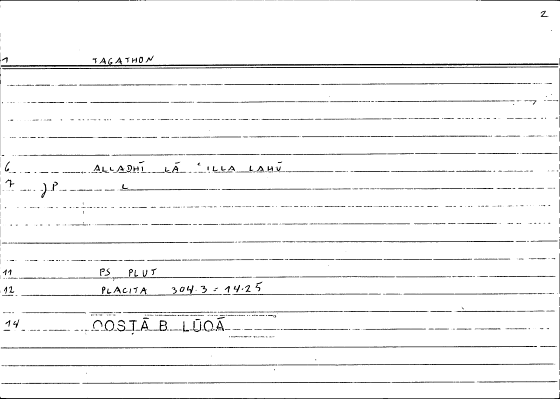 2
1 TAGATHON
6 ALLADHĪ LĀ ʿILLA LAHŪ
7 JP L
11 PS PLUT
12 PLACITA 304.3 = 14.25
14 QOSṬĀ B. LŪQĀ